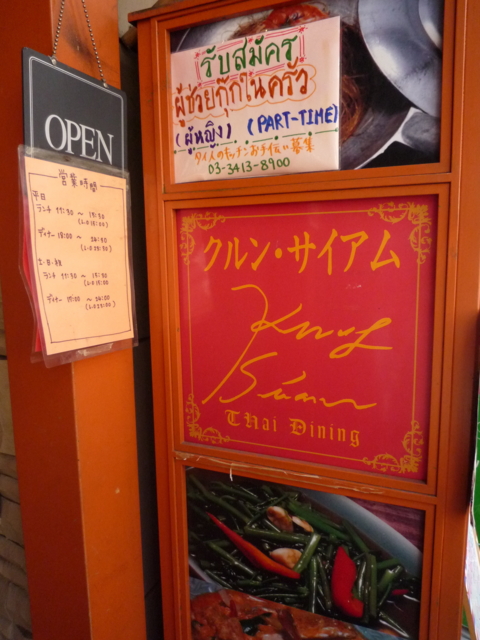 OPEN
営業時間
平日
ランチ 11:30 ~ 15:30
(L.O 15:00)
ディナー 18:00 ~
土・日・祝
ランチ 11:30 ~
ディナー
รับสมัคร
ผู้ช่วยกุ๊กในครัว
(ผู้หญิง) (PART-TIME)
タイ人のキッチンお手伝い募集
03-3413-8900
クルン・サイアム
Krung
Siam
Thai Dining